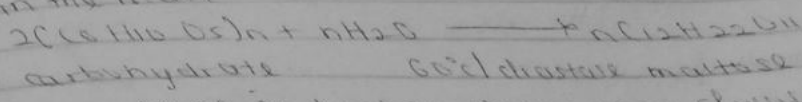 2(C6H10O5)n + nH2O ⟶ nC12H22O11
carbohydrate 60°c/diastase maltose